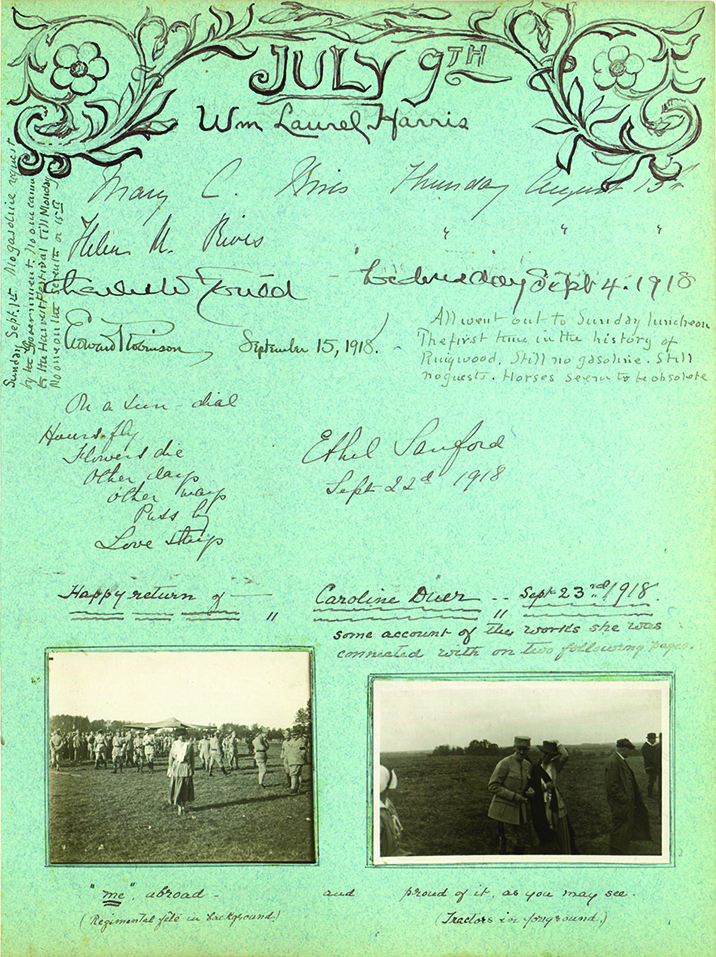 JULY 9TH
Wm Laurel Harris
Mary C. Thursday August 15th
Helen N. Rives " " "
Wednesday Sept 4. 1918
Edward Robinson September 15, 1918.
Sunday Sept. 1st No gasoline request
by the Government. No one came
to the Harvest Festival till Monday
No one on the seventh or 15th
All went out to Sunday luncheon
The first time in the history of
Ringwood. Still no gasoline. Still
no guests. Horses seem to be obsolete
On a sun-dial
Hours fly
Flowers die
Other days
Other ways
Pass by
Love stays
Ethel Sanford
Sept 22d 1918
Happy return of — Caroline Duer -- Sept 23rd 1918.
" "
some account of the works she was
connected with on two following pages.
"me", abroad - and proud of it, as you may see.
(Regimental fête in background.) (Tractors in foreground.)